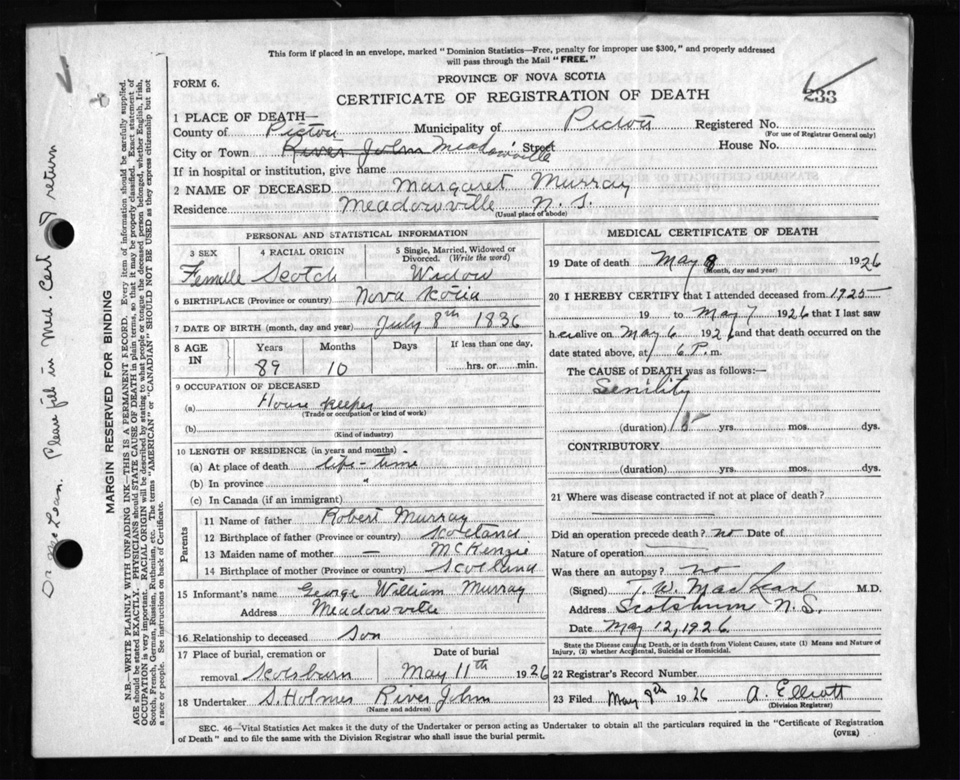 This form if placed in an envelope, marked "Dominion Statistics—Free, penalty for improper use $300," and properly addressed
will pass through the Mail "FREE."
FORM 6.
PROVINCE OF NOVA SCOTIA
CERTIFICATE OF REGISTRATION OF DEATH
233
1 PLACE OF DEATH—
County of Pictou Municipality of Pictou Registered No.
(For use of Registrar General only)
City or Town River John Meadowville Street House No.
If in hospital or institution, give name
2 NAME OF DECEASED Margaret Murray
Residence Meadowville N. S.
(Usual place of abode)
PERSONAL AND STATISTICAL INFORMATION
3 SEX 4 RACIAL ORIGIN 5 Single, Married, Widowed or
Divorced. (Write the word)
Female Scotch Widow
6 BIRTHPLACE (Province or country) Nova Scotia
7 DATE OF BIRTH (month, day and year) July 8th 1836
8 AGE IN Years Months Days If less than one day,
89 10 hrs. or min.
9 OCCUPATION OF DECEASED
(a) House keeper
(Trade or occupation or kind of work)
(b)
(Kind of industry)
10 LENGTH OF RESIDENCE (in years and months)
(a) At place of death life-time
(b) In province "
(c) In Canada (if an immigrant)
Parents
11 Name of father Robert Murray
12 Birthplace of father (Province or country) Scotland
13 Maiden name of mother — McKenzie
14 Birthplace of mother (Province or country) Scotland
15 Informant's name George William Murray
Address Meadowville
16 Relationship to deceased Son
17 Place of burial, cremation or Date of burial
removal Scotsburn May 11th 1926
18 Undertaker S. Holmes River John
(Name and address)
MEDICAL CERTIFICATE OF DEATH
19 Date of death May 8 1926
(Month, day and year)
20 I HEREBY CERTIFY that I attended deceased from 1925
19 to May 7 1926 that I last saw
her alive on May 6 1926 and that death occurred on the
date stated above, at 6 P. m.
The CAUSE of DEATH was as follows:—
Senility
(duration) yrs. mos. dys.
CONTRIBUTORY.
(duration) yrs. mos. dys.
21 Where was disease contracted if not at place of death?
Did an operation precede death? no Date of
Nature of operation
Was there an autopsy? no
(Signed) T. W. MacLean M.D.
Address Scotsburn N.S.
Date May 12, 1926
State the Disease causing Death, or in death from Violent Causes, state (1) Means and Nature of
Injury, (2) whether Accidental, Suicidal or Homicidal.
22 Registrar's Record Number
23 Filed May 8th 1926 A. Elliott
(Division Registrar)
SEC. 46—Vital Statistics Act makes it the duty of the Undertaker or person acting as Undertaker to obtain all the particulars required in the "Certificate of Registration
of Death" and to file the same with the Division Registrar who shall issue the burial permit.
(OVER)
Dr McLean. Please fill in Med. Cert & return
MARGIN RESERVED FOR BINDING
N.B.—WRITE PLAINLY WITH UNFADING INK—THIS IS A PERMANENT RECORD. Every item of information should be carefully supplied.
AGE should be stated EXACTLY. PHYSICIANS should STATE CAUSE OF DEATH in plain terms, so that it may be properly classified. Exact statement of
OCCUPATION is very important. RACIAL ORIGIN will be described by stating to what people or tongue the deceased person belonged, whether English, Irish,
Scotch, French, German, Russian, Ruthenian, etc. The terms "AMERICAN" or "CANADIAN" SHOULD NOT BE USED as they express citizenship but not
a race or people. See instructions on back of Certificate.